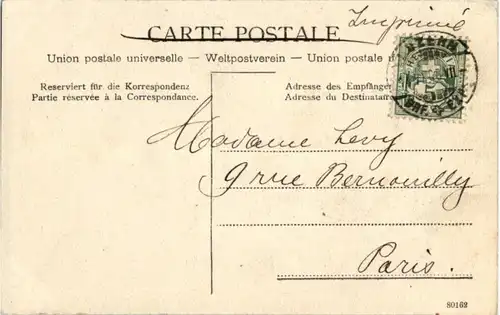 Imprimé
CARTE POSTALE
Union postale universelle – Weltpostverein – Union postale
Reserviert für die Korrespondenz
Partie réservée à la Correspondance.
Adresse des Empfänger
Adresse du Destinatair
Madame Levy
9 rue Bernouilly
Paris.
80162